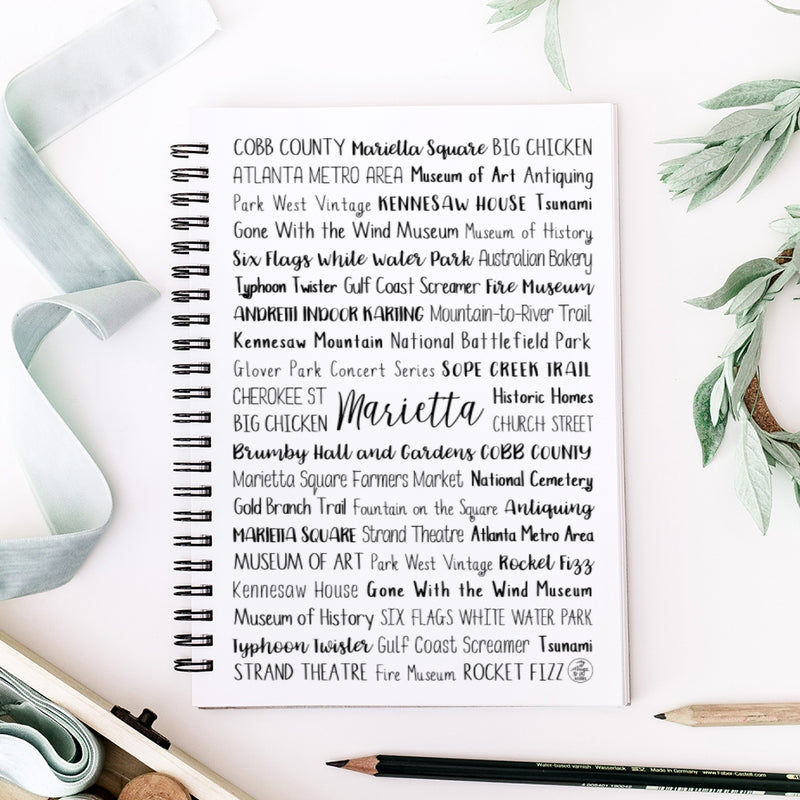 COBB COUNTY Marietta Square BIG CHICKEN
ATLANTA METRO AREA Museum of Art Antiquing
Park West Vintage KENNESAW HOUSE Tsunami
Gone With the Wind Museum Museum of History
Six Flags While Water Park Australian Bakery
Typhoon Twister Gulf Coast Screamer Fire Museum
ANDRETTI INDOOR KARTING Mountain-to-River Trail
Kennesaw Mountain National Battlefield Park
Glover Park Concert Series SOPE CREEK TRAIL
CHEROKEE ST Marietta Historic Homes
BIG CHICKEN CHURCH STREET
Brumby Hall and Gardens COBB COUNTY
Marietta Square Farmers Market National Cemetery
Gold Branch Trail Fountain on the Square Antiquing
MARIETTA SQUARE Strand Theatre Atlanta Metro Area
MUSEUM OF ART Park West Vintage Rocket Fizz
Kennesaw House Gone With the Wind Museum
Museum of History SIX FLAGS WHITE WATER PARK
Typhoon Twister Gulf Coast Screamer Tsunami
STRAND THEATRE Fire Museum ROCKET FIZZ
Water-based varnish Wasserlack Made in Germany www.Faber-Castell.com